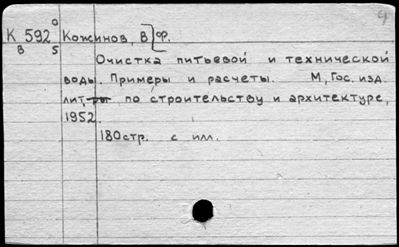 К 592 Кожинов, В]Ф.
Очистка питьевой и технической
воды. Примеры и расчеты. М, Гос. изд.
лит-ры по строительству и архитектуре,
1952.
180стр. с илл.